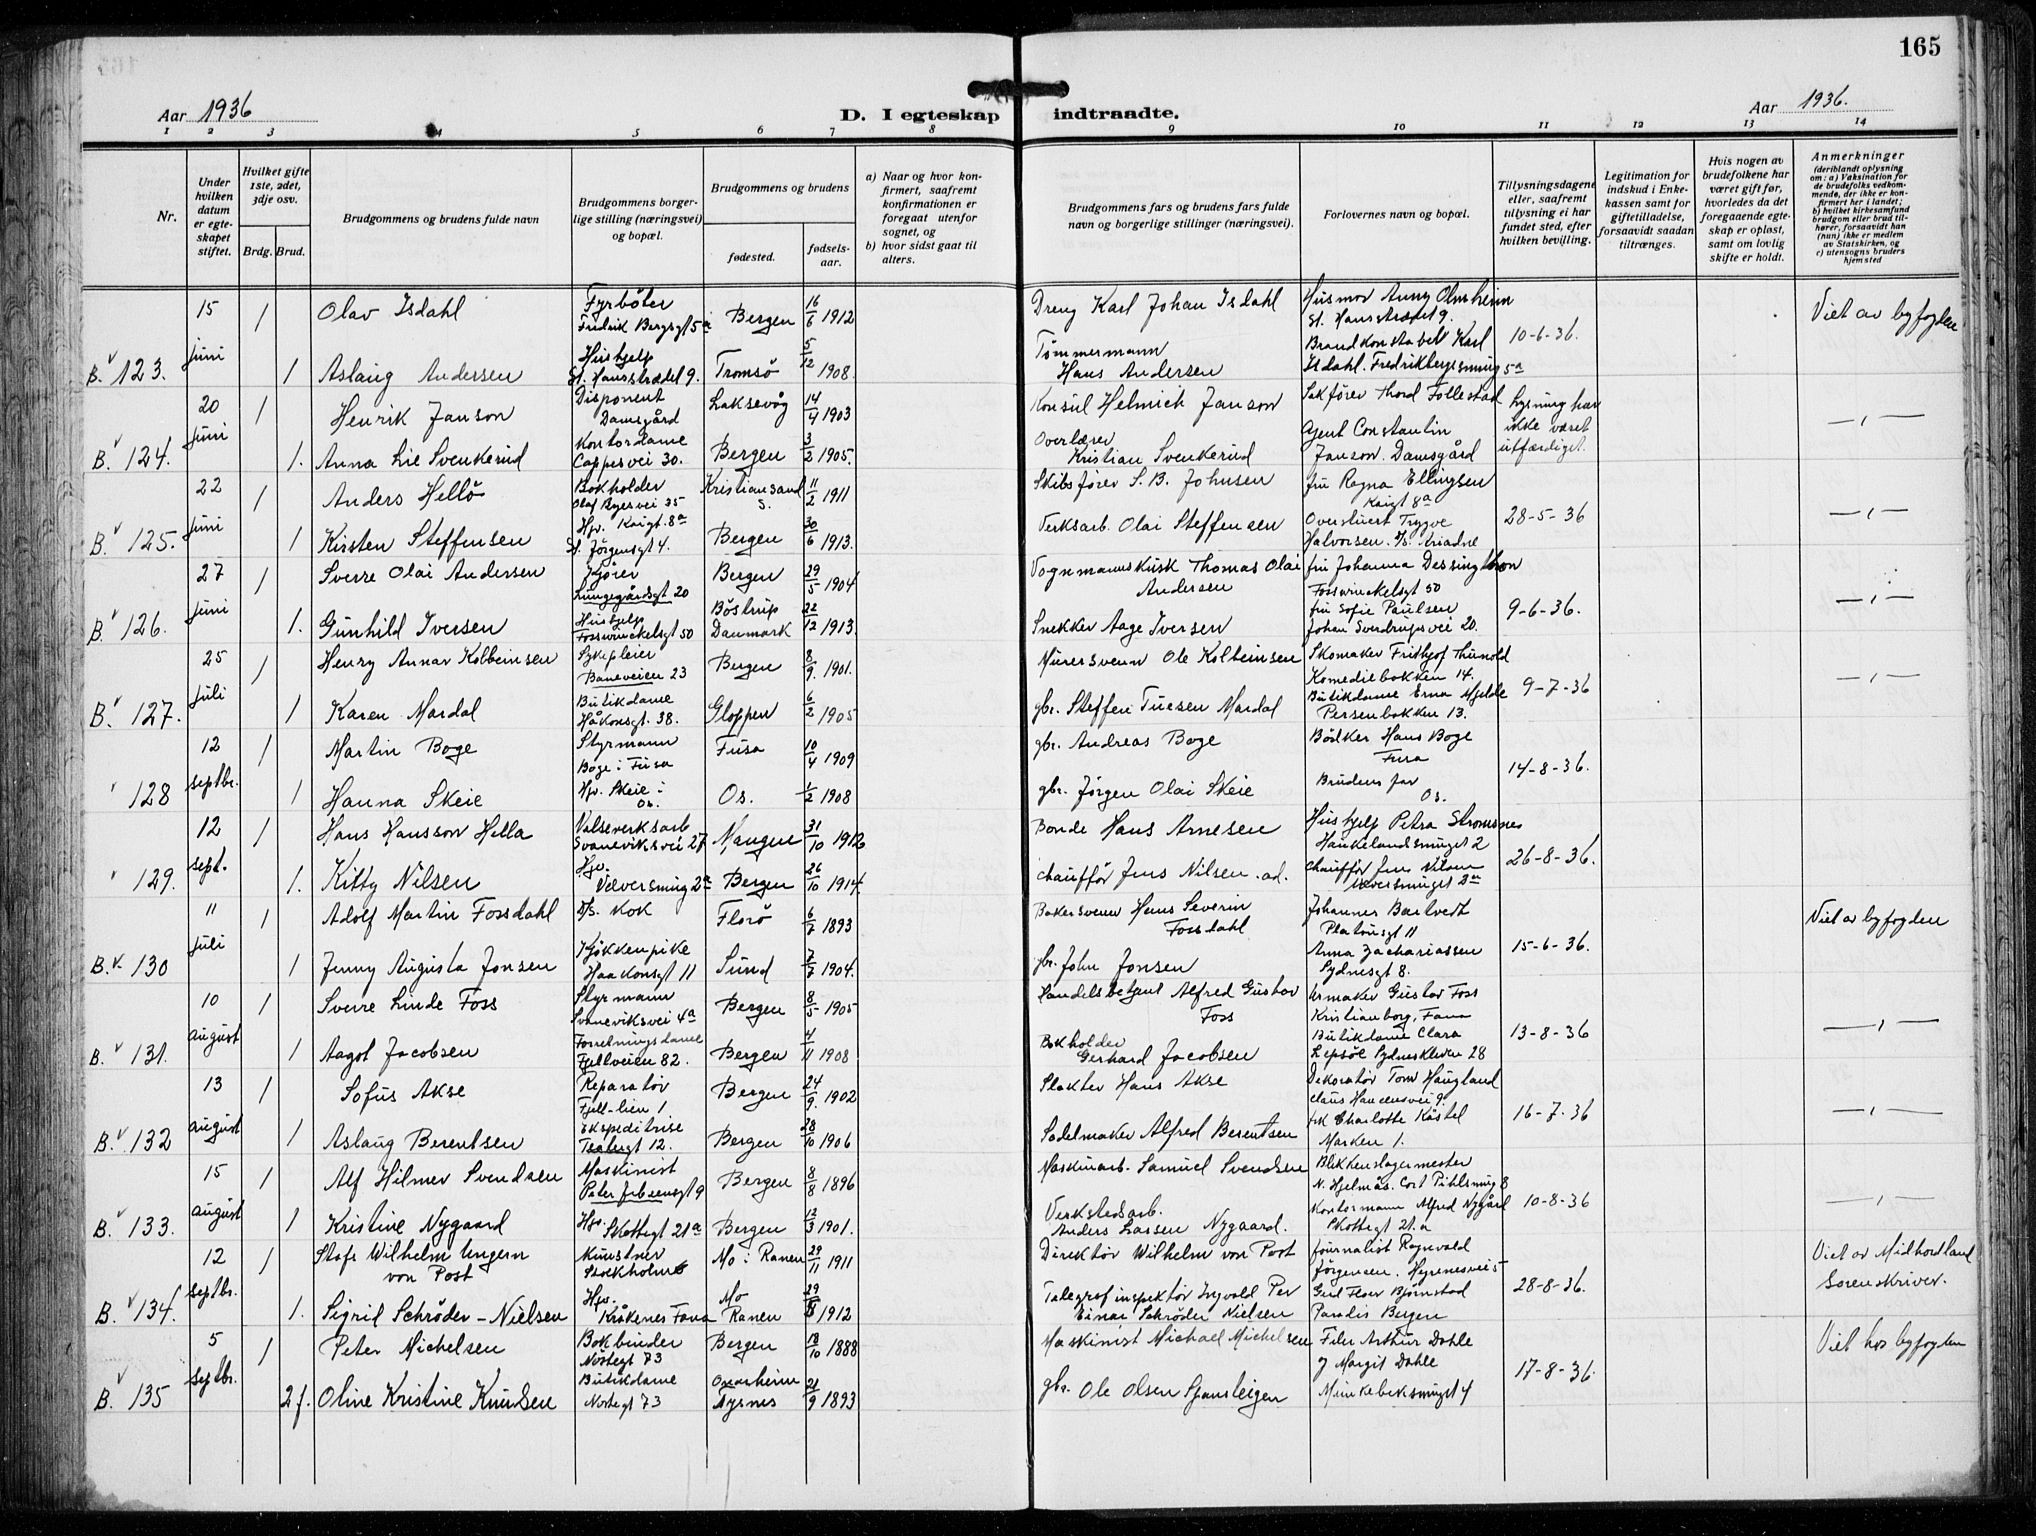 165
Aar 1936
D. I egteskap indtraadte.
Aar 1936.
1 2 3 4 5 6 7 8 9 10 11 12 13 14
Nr.
Under hvilken datum er egteskapet stiftet.
Hvilket gifte 1ste, 2det, 3dje osv.
Brdg. Brud.
Brudgommens og brudens fulde navn
Brudgommens borgerlige stilling (næringsvei) og bopæl.
Brudgommens og brudens
fødested.
fødselsaar.
a) Naar og hvor konfirmert, saafremt konfirmationen er foregaat utenfor sognet, og
b) hvor sidst gaat til alters.
Brudgommens fars og brudens fars fulde navn og borgerlige stillinger (næringsvei).
Forlovernes navn og bopæl.
Tillysningsdagene eller, saafremt tillysning ei har fundet sted, efter hvilken bevilling.
Legitimation for indskud i Enkekassen samt for giftetilladelse, forsaavidt saadan tiltrænges.
Hvis nogen av brudefolkene har været gift før, hvorledes da det foregaaende egteskap er opløst, samt om lovlig skifte er holdt.
Anmerkninger (deriblandt oplysning om: a) Vaksination for de brudefolks vedkommende, der ikke er konfirmert her i landet; b) hvilket kirkesamfund brudgom eller brud tilhører, forsaavidt han (hun) ikke er medlem av Statskirken, og c) utensogns bruders hjemsted
B. 123. 15 juni
1 Olav Isdahl Fyrbøter Fredrik Bergsgt 5a Bergen 16/6 1912 Dreng Karl Johan Isdahl Husmor Anny Olmheim St. Hansstrædet 9. 10-6-36. Viet av byfogden
1 Aslaug Andersen Hushjelp St. Hansstrædet 9. Tromsø 5/12 1908. Tømmermann Hans Andersen Brandkonstabel Karl Isdahl. Fredrikbergsmug 5a
B. 124. 20 juni
1 Henrik Janson Disponent Damsgård Laksevåg 14/4 1903 Konsul Helmich Janson Sakfører Thord Follestad Lysning har ikke været utfærdiget. —,—
1. Anna Lie Svenkerud Kontordame Cappesvei 30. Bergen 3/2 1905. Overlærer Kristian Svenkerud Agent Constantin Janson. Damsgård
B. 125. 22 juni
1 Anders Hellø Bokholder Olaf Ryesvei 35 Kristiansand S. 11/2 1911 Skibsfører S. B. Johnsen fru Ragna Ellingsen Kaigt 8a 28-5-36 —,—
1 Kirsten Steffensen Hjv. Kaigt. 8a St. Jørgensgt 4. Bergen 30/6 1913. Verksarb. Olai Steffensen Overstuert Trygve Halvorsen. D/S. Ariadne
B. 126. 27 juni
1 Sverre Olai Andersen Kjører Lungegårdsgt 20 Bergen 29/5 1904 Vognmannskusk Thomas Olai Andersen fru Johanna Dessingthon Fosswinckelsgt 50 9-6-36. —,—
1. Gunhild Iversen Hushjelp Fosswinckelsgt 50 Bøstrup Danmark 22/12 1913. Snekker Aage Iversen fru Sofie Paulsen Johan Sverdrupsvei 20.
B. 127. 25 juli
1 Henry Annar Kolbeinsen Sykepleier Baneveien 23 Bergen 8/9. 1901. Murersvenn Ole Kolbeinsen Skomaker Fridtjof Thunold Komediebakken 14. 9-7-36 —,—
1 Karen Mardal Butikdame Håkonsgt. 38. Gloppen 6/2 1905 gbr. Steffen Tuesen Mardal Butikdame Erna Mjelde Persenbakken 13.
128 12 septbr.
1 Martin Boge Styrmann Boge i Fusa Fusa 10/4 1909 gbr. Andreas Boge Bødker Hans Boge Fusa 14-8-36.
1 Hanna Skeie Hjv. Skeie i Os. Os. 1/2 1908 gbr. Jørgen Olai Skeie Brudens far Os.
129. 12 sept.
1 Hans Hansson Hella Valseverksarb Svaneviksvei 27 Mangen 31/10 1912 Bonde Hans Arnesen Hushjelp Petra Stromsnes Haukelandsmuget 2 26-8-36.
1. Kitty Nilsen Hjv. Velversmug 2a Bergen 26/10 1914. chauffør Jens Nilsen. ad. chauffør Jens Nilsen Velversmuget 2a
B. 130 11 juli
1 Adolf Martin Fossdahl D/S. Kok Florø 6/7 1893 Bakersvenn Hans Severin Fossdahl Johannes Bartvedt Platousgt 11 15-6-36. Viet av byfogden
1 Jenny Augusta Jonsen Kjøkkenpike Haakonsgt 11 Sund 7/7 1904. gbr. John Jonsen Anna Zachariassen Sydnesgt 8.
B. 131. 10 august
1 Sverre Linde Foss Styrmann Svaneviksvei 4a Bergen 8/5 1905 Handelsbetjent Alfred Gustav Foss Urmaker Gustav Foss Kristianborg, Fana 13-8-36 —,—
1 Aagot Jacobsen Forretningsdame Fjellveien 82. Bergen 4/11 1908 Bokholder Gerhard Jacobsen Butikdame Clara Lepsøe Sydneskleven 28
B. 132 13 august
1 Sofus Akse Reparatør Fjell-lien 1 Bergen 24/9. 1902 Slakter Hans Akse Dekoratør Tom Haugland Claus Hansensvei 9. 16-7-36 —,—
1 Aslaug Berentsen Ekspeditrise Teatergt 12. Bergen 28/10 1906 Sadelmaker Alfred Berentsen frk Charlotte Køstel Marken 1.
B. 133. 15 august
1 Alf Hilmer Svendsen Maskinist Peter Jebsensgt 9 Bergen 8/8 1896 Maskinarb. Samuel Svendsen Blikkenslagermester N. Hjelmås. Cort Pihlsmug 8 10-8-36 —,—
1 Kristine Nygaard Hjv. Skottegt 21a Bergen 12/3 1901. Verkstedsarb. Anders Lassen Nygaard. Kontormann Alfred Nygård Skottegt 21.a
B. 134. 12 septbr.
1 Stafs Wilhelm Ungern von Post Kunstner Stockholm Mo i Ranen 29/11 1911 Direktør Wilhelm von Post Journalist Ragnvald Jørgensen. Myrenesvei 5 28-8-36. Viet av Midhordland Sorenskriver.
1. Sigrid Schrøder-Nielsen Hjv. Kråkenes Fana Mo Ranen 1912 Telegrafinspektør Ingvald Per Einar Schrøder Nielsen Gud Flor Bjørnstad Paradis Bergen
B. 135 5 Septbr.
1 Peter Michelsen Bokbinder Nøstegt 73 Bergen 18/10 1888 Maskinist Michael Michelsen Filer Arthur Dahle 17-8-36. Viet hos byfogden
2 f. Oline Kristine Knudsen Butikdame Nøstegt 73 Onarheim Tysnes 21/9 1893 gbr. Ole Olsen Spansteigen og Margit Dahle Munkebeksmuget 4